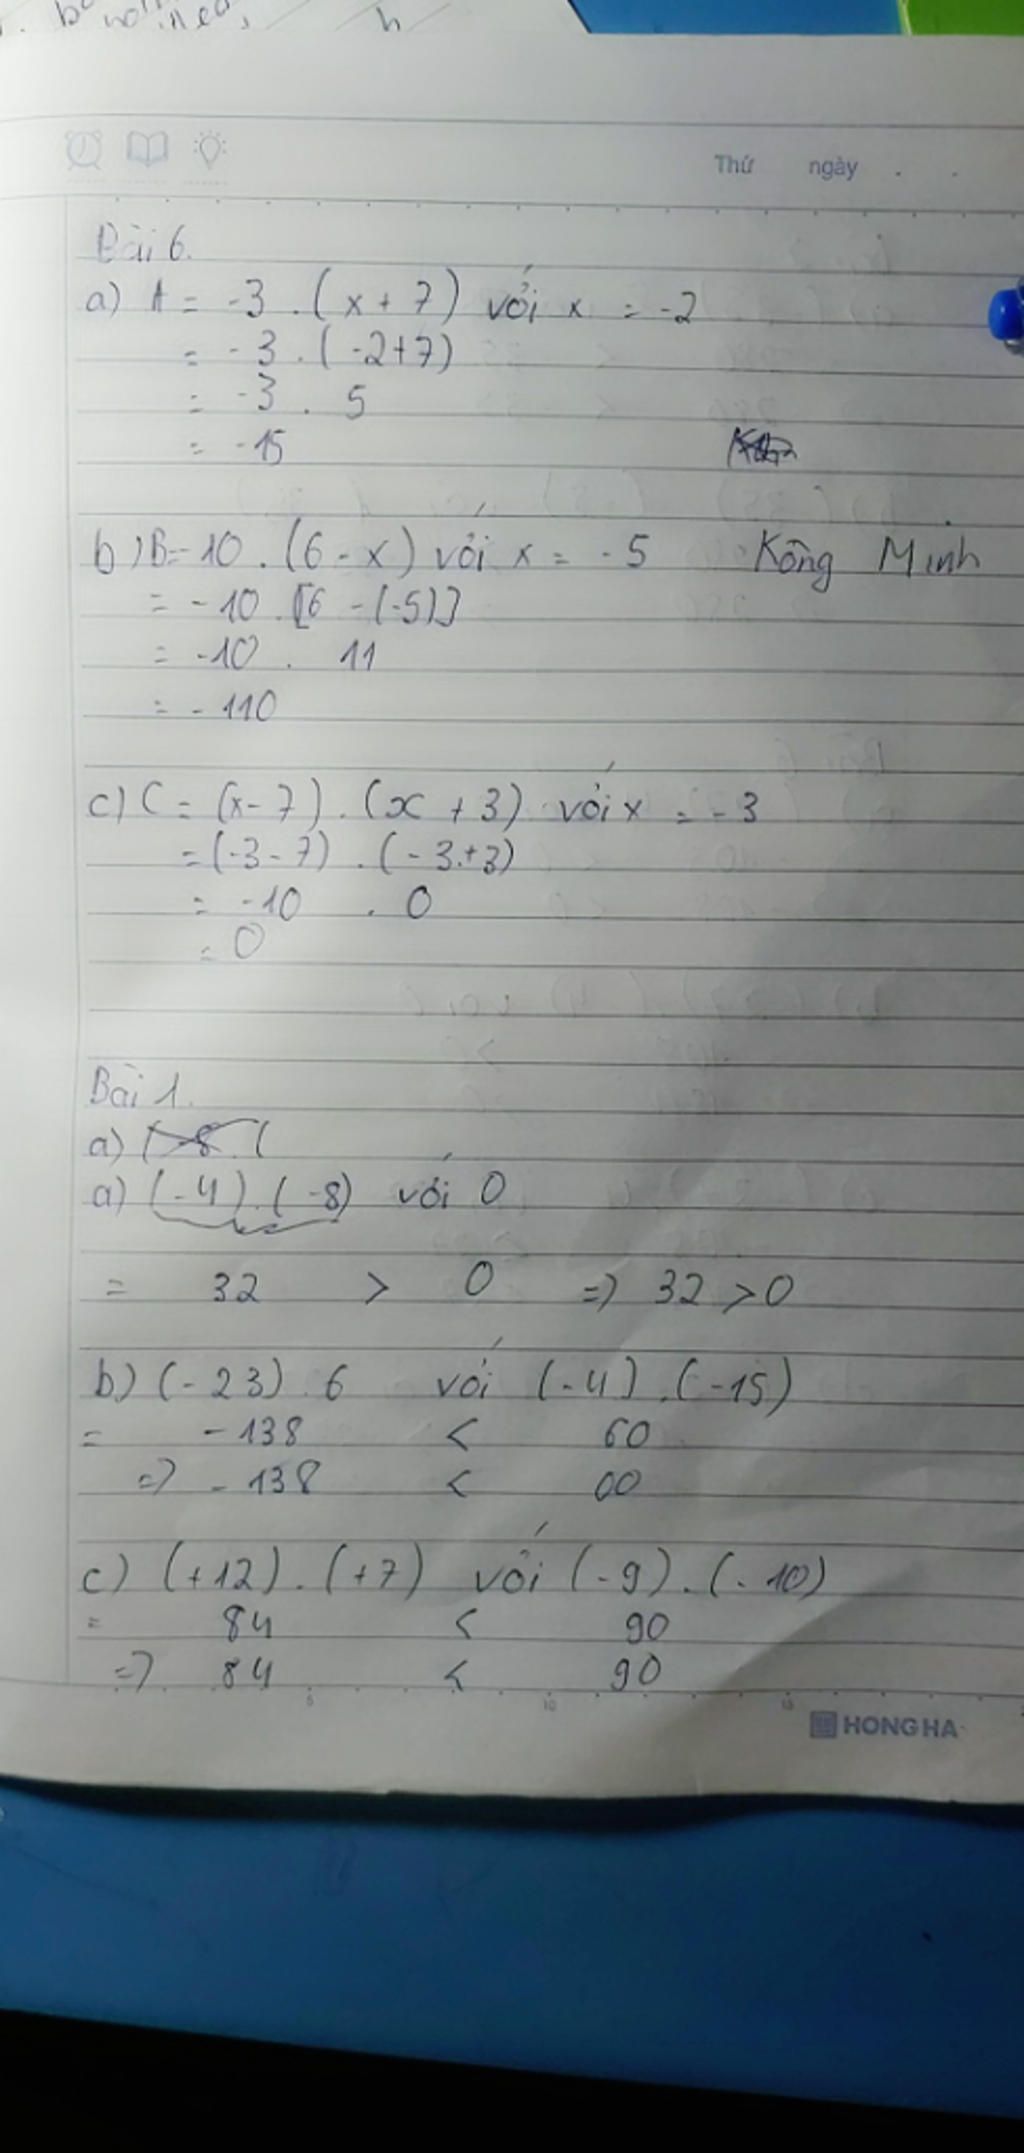 Thứ ngày
Bài 6.
a) A = -3 . (x + 7) với x = -2
= -3 . (-2+7)
= -3 . 5
= -15
b) B = -10 . (6 - x) với x = -5 Kông Minh
= -10 . [6 - (-5)]
= -10 . 11
= -110
c) C = (x - 7) . (x + 3) với x = -3
= (-3 - 7) . (-3 + 3)
= -10 . 0
= 0
Bài 1.
a)
a) (-4) . (-8) với 0
= 32 > 0 => 32 > 0
b) (-23) . 6 với (-4) . (-15)
= -138 < 60
=> -138 < 60
c) (+12) . (+7) với (-9) . (-10)
= 84 < 90
=> 84 < 90
5 10 15
HONG HA